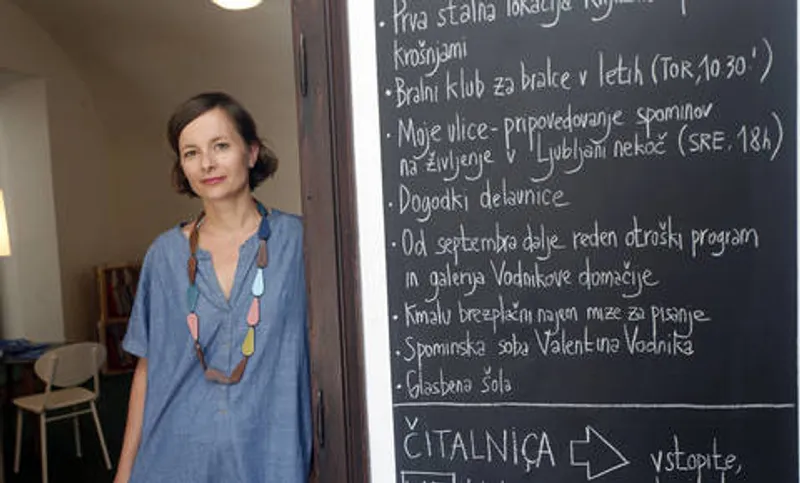 • Prva stalna lokacija Knjižnice pod
krošnjami
• Bralni klub za bralce v letih (TOR, 10.30')
• Moje ulice - pripovedovanje spominov
na življenje v Ljubljani nekoč (SRE. 18h)
• Dogodki delavnice
• Od septembra dalje reden otroški program
in galerija Vodnikove domačije
• Kmalu brezplačni najem mize za pisanje
• Spominska soba Valentina Vodnika
• Glasbena šola
ČITALNICA
vstopite,